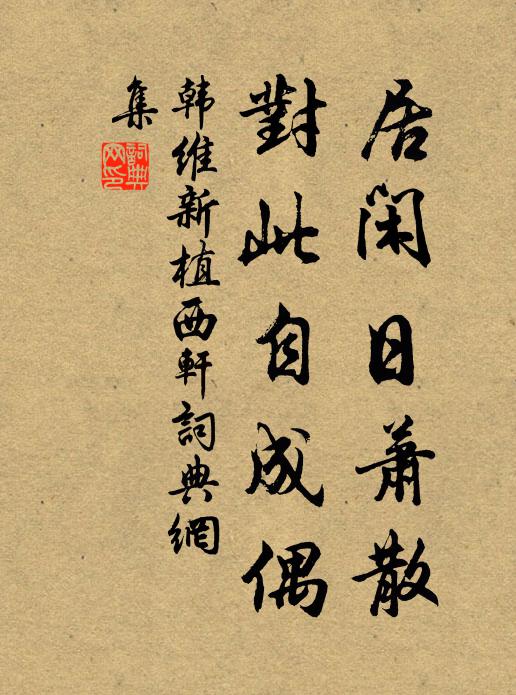 居閑日蕭散
對此自成偶
韩維新植西軒詞典網
集
詞典
网印